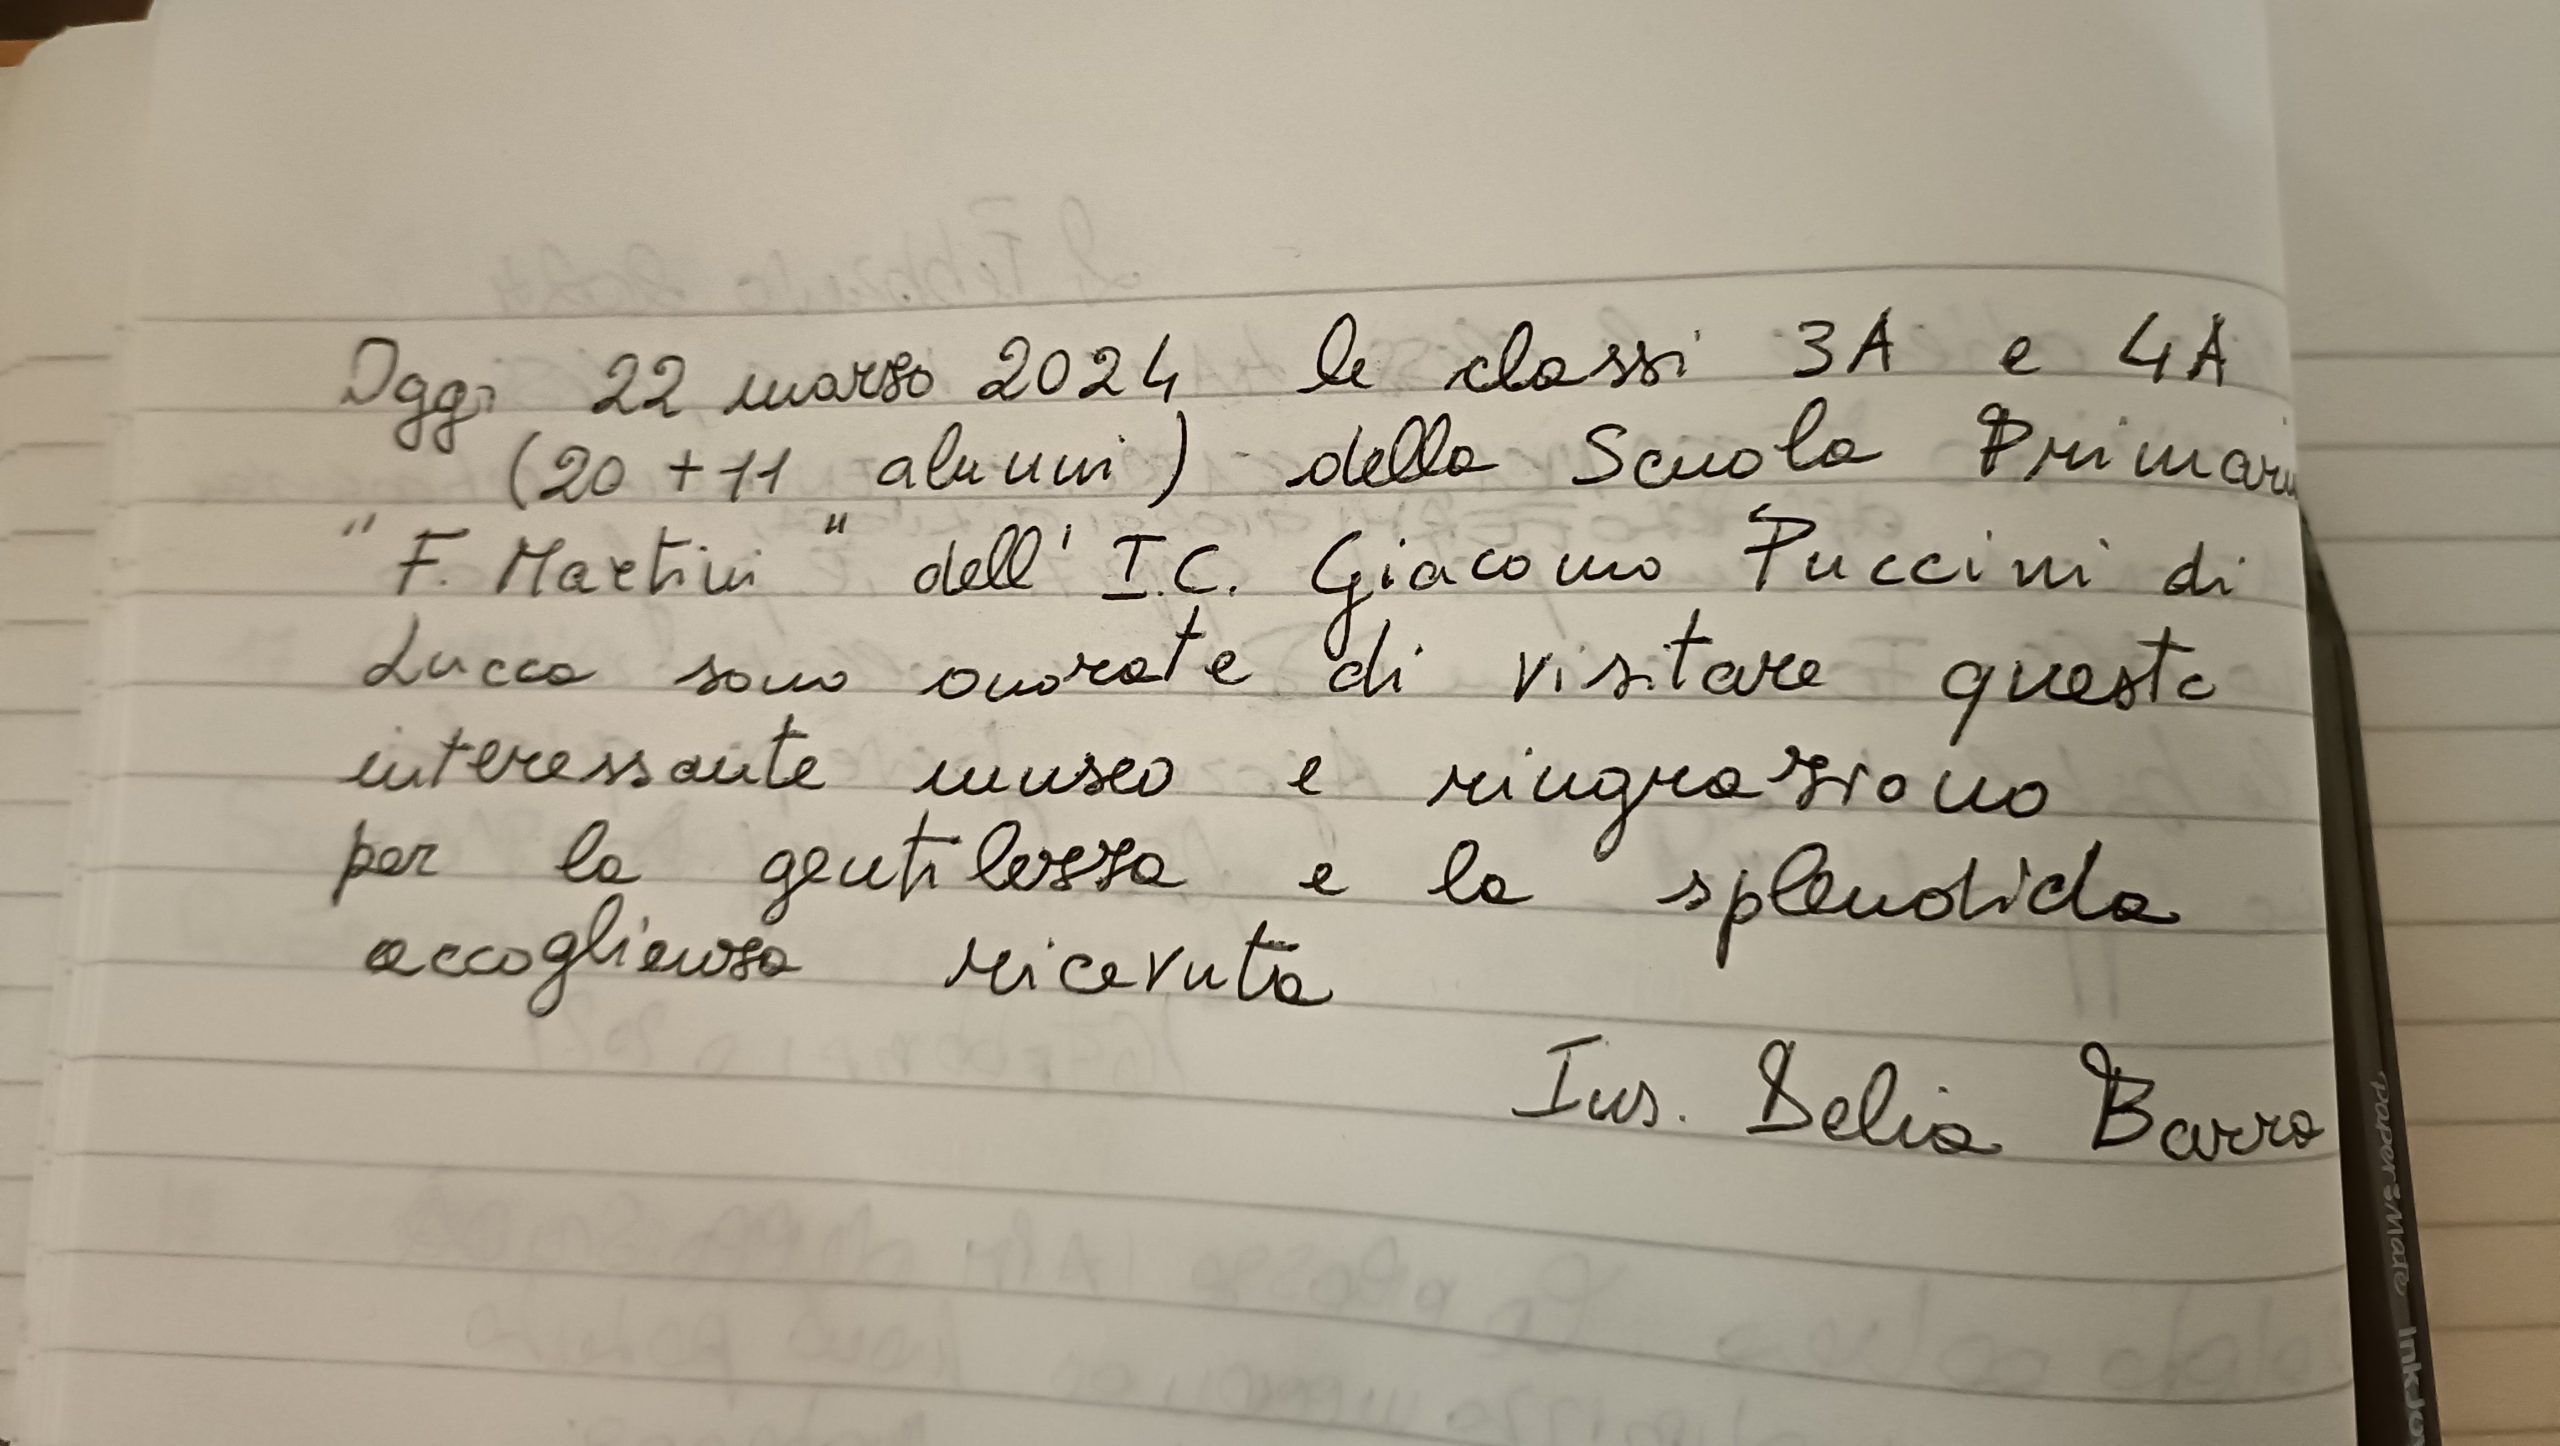 Oggi 22 marzo 2024 le classi 3A e 4A
(20 + 11 alunni) della Scuola Primaria
"F. Martini" dell' I.C. Giacomo Puccini di
Lucca sono onorate di visitare questo
interessante museo e ringraziano
per la gentilezza e la splendida
accoglienza ricevuta
Ins. Delia Barra
paper:mate InkJoy